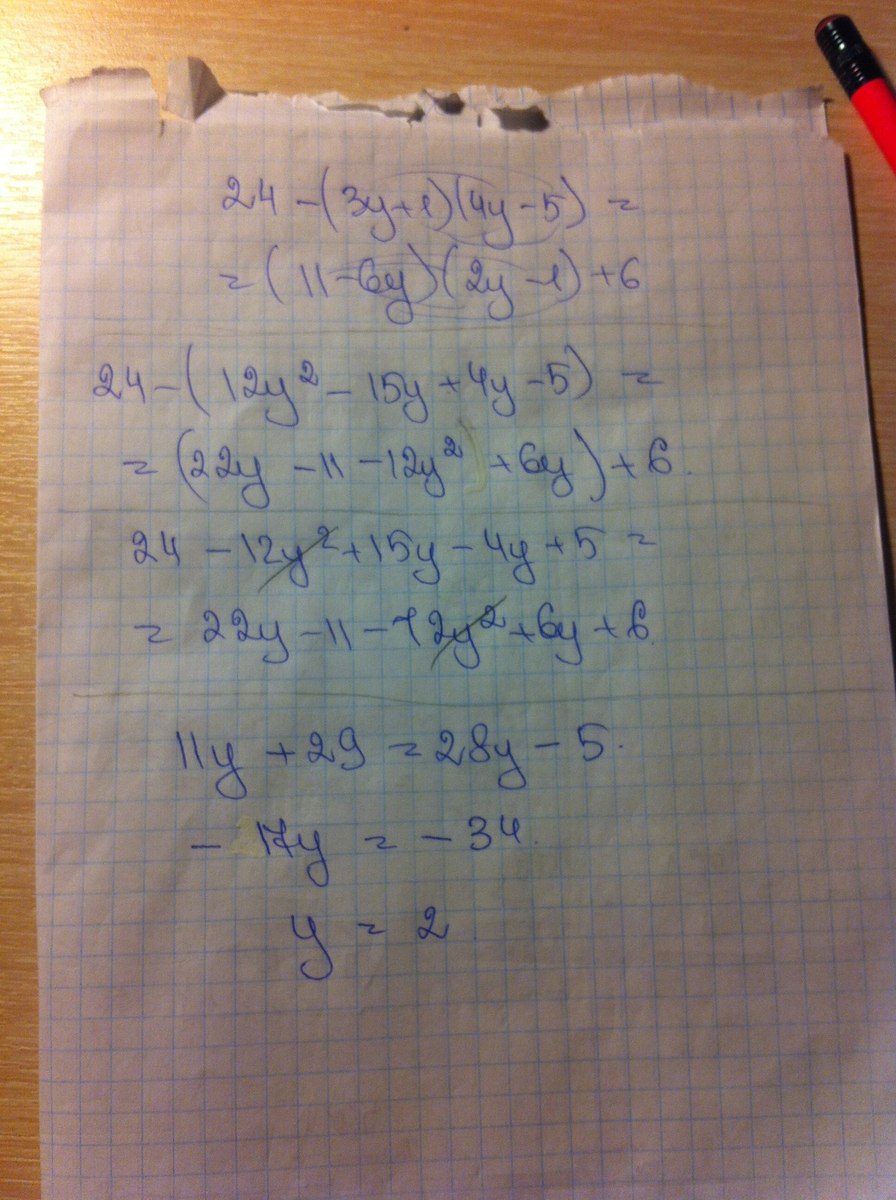 24 - (3y+1)(4y-5) =
= (11-6y)(2y-1)+6
24 - (12y² - 15y + 4y - 5) =
= (22y - 11 - 12y² + 6y) + 6.
24 - 12y² + 15y - 4y + 5 =
= 22y - 11 - 12y² + 6y + 6
11y + 29 = 28y - 5.
- 17y = - 34.
y = 2